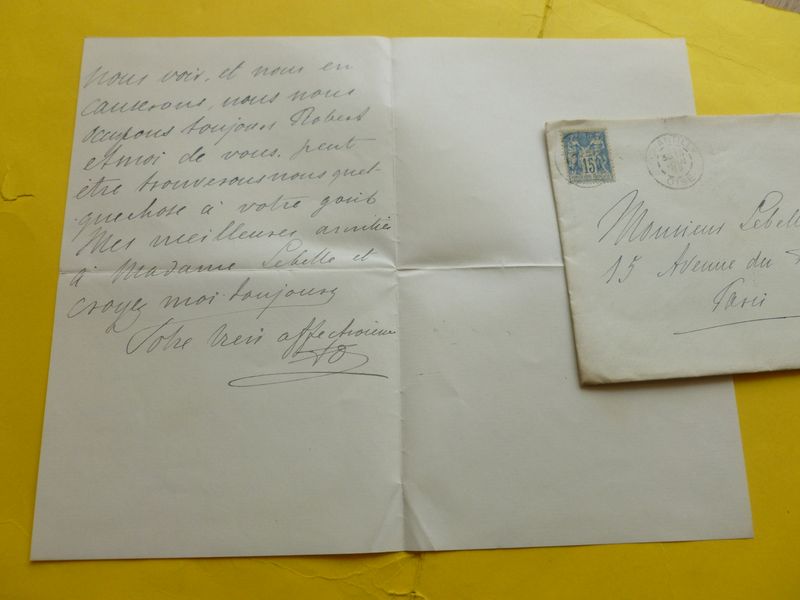 nous voir, et nous en
causerons, nous nous
occupons toujours Robert
et moi de vous. peut
être trouverons nous quel-
que chose à votre goût
Mes meilleures amitiés
à Madame Lebelle et
croyez moi toujours
Votre très affectionné
15
OISE
Monsieur Lebelle
15 Avenue du
Paris